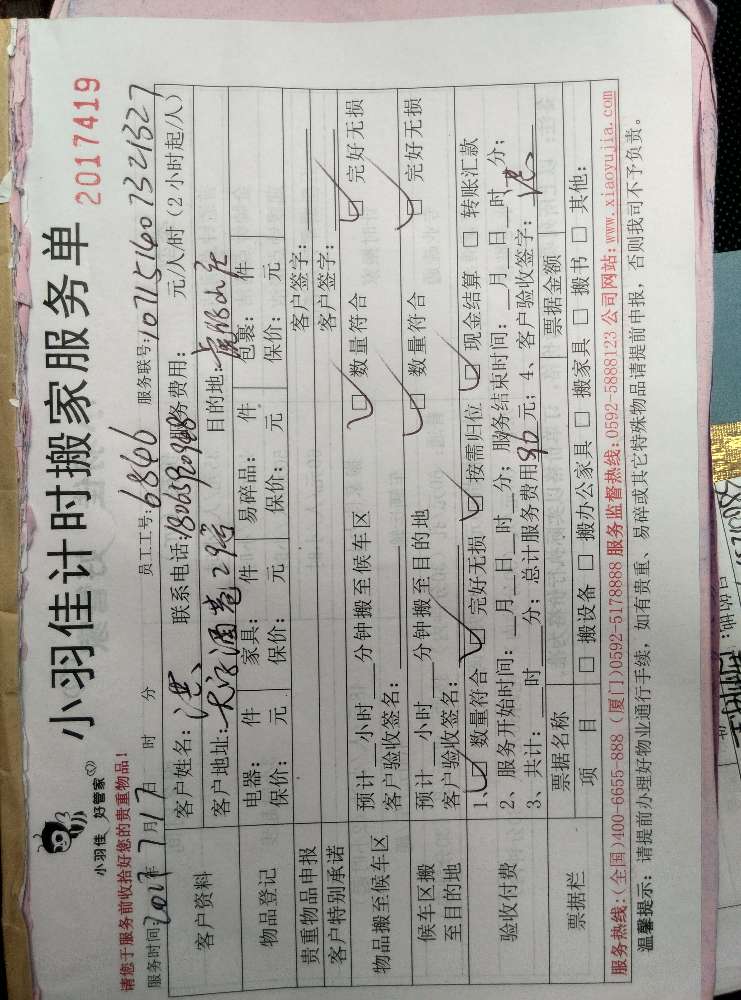 小羽佳计时搬家服务单
2017419
小羽佳 好管家
请您于服务前收拾好您的贵重物品!
服务时间:2017年7月17日 时 分 员工工号:6846 服务联号:107151607321327
客户资料
客户姓名:洪 联系电话:18065909 服务费用: 元/人/时(2小时起/人)
客户地址: 巷29号 目的地:
物品登记
电器: 件 家具: 件 易碎品: 件 包裹: 件
保价: 元 保价: 元 保价: 元 保价: 元
贵重物品申报 客户签字:
客户特别承诺 客户签字:
物品搬至候车区
预计__小时__分钟搬至候车区 ☑ 数量符合 ☑ 完好无损
客户验收签名:
候车区搬至目的地
预计__小时__分钟搬至目的地 ☑ 数量符合 ☑ 完好无损
客户验收签名:
验收付费
1、☑ 数量符合 ☑ 完好无损 ☑ 按需归位 ☑ 现金结算 □ 转账汇款
2、服务开始时间:__月__日__时__分;服务结束时间:__月__日__时__分;
3、共计:__时__分;总计服务费用 90 元;4、客户验收签字:洪
票据栏
票据名称 票据金额
项 目 □ 搬设备 □ 搬办公家具 □ 搬家具 □ 搬书 □ 其他:
服务热线:(全国)400-6655-888 (厦门)0592-5178888 服务监督热线:0592-5888123 公司网站:www.xiaoyujia.com
温馨提示:请提前办理好物业通行手续,如有贵重、易碎或其它特殊物品请提前申报,否则我司不予负责。